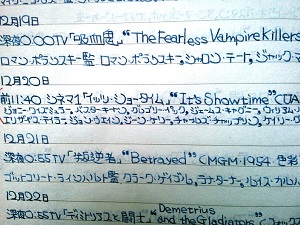 12月19日
深夜0:00TV「吸血鬼」"The Fearless Vampire Killers
ロマン・ポランスキー監 ロマン・ポランスキー、シャロン・テート、ジャック・マ
12月20日
前11:40 シネマ1「イッツ・ショータイム」"It's Showtime"(UA
ジョニー・ワイズミュラー、バスター・キートン、グレゴリー・ペック、ジェームス・キャグニー、ウィリアム
エリザベス・テイラー、ジーン・ケリー、チャールズ・チャップリン、ケイリー・グ
12月21日
深夜0:55TV「叛逆者」"Betrayed"(MGM・1954 色彩
ゴットフリート・ラインハルト監 クラーク・ゲイブル、ラナ・ターナー、ルイス・カルハ
12月22日
深夜0:55TV「ディミトリアスと闘士」"Demetrius and the Gladiators"(フォックス